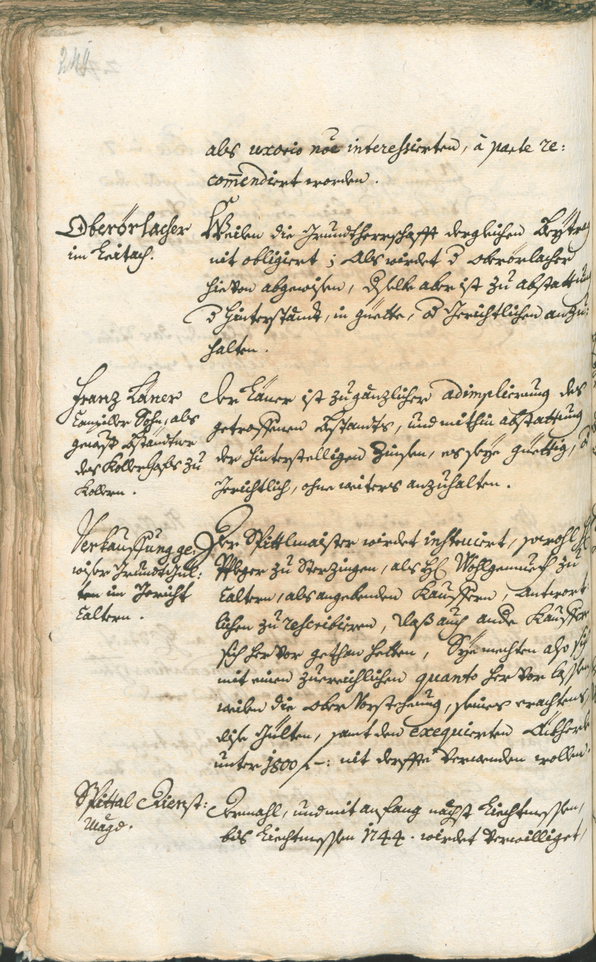 244
als uxorio noe interessierten, à parte re:
commendiert worden.
Oberörlacher
im Leitach.
Weilen die Grundtherrschafft dergleichen
nit obligiert; Als wirdet d Oberörlacher
hievon abgewisen, dselbe aber ist zu abstattung
d hinterständt, in güette, od Gerichtlichen anzu:
halten.
Franz Läner
Sohn, als
gewest Bstandtner
des Kellerhofs zu
Köllern.
der Läner ist zu gänzlicher adimplierung des
getroffenen Bstandts, und mithin abstattung
der hinterstelligen Zinsen, es seye güettig, od
Gerichtlich, ohne weiters anzuhalten.
Verkauffung ge:
wiser Grundtgül:
ten im Gericht
Caltern.
Der Spittlmaister wirdet instruiert, sowohl H
Pfleger zu Sterzingen, als H Wohlgemueth zu
Caltern, als angebenden Kauffern, Antwort
lichen zu rescribieren, daß auch ande Kauffer
sich hervor gethan hetten, Sye mechten also sich
mit einen zuereichlichen quanto hervor lassen
weilen die Ober Vorstehung, seines erachtens
dise Gülten, samt den exequierten
unter 1800 f: nit derffte verwenden wollen.
Spittal Dienst:
Magd.
Dermahl, und mit anfang nächst Liechtmessen,
bis Liechtmessen 1744. wirdet verwilliget,